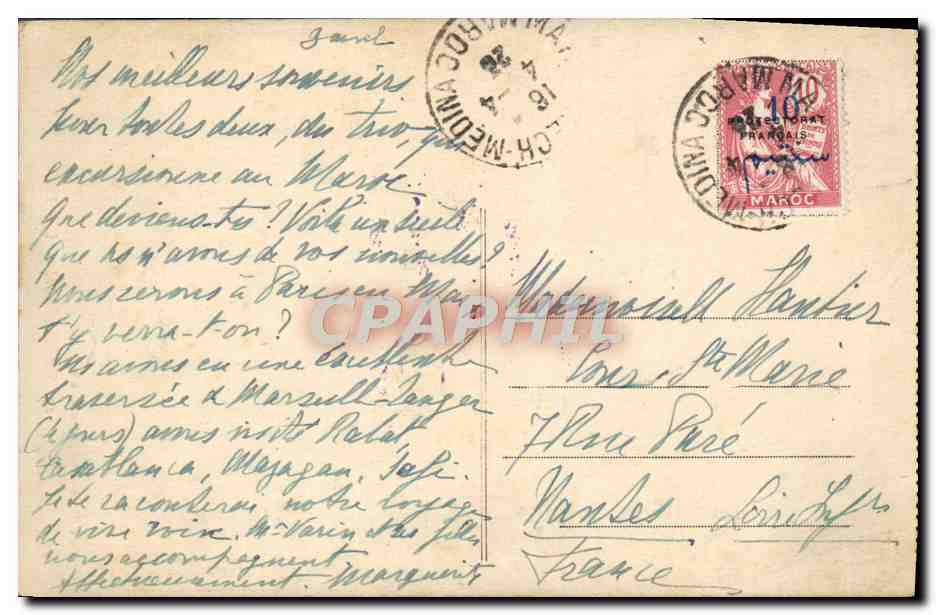 Nos meilleurs souvenirs
pour toutes deux, du trio, qui
excursionne au Maroc
Que deviens-tu? Voilà un siècle
que ns n'avons de vos nouvelles?
Nous serons à Paris en Mai
t'y verra-t-on?
Ns avons eu une excellente
traversée de Marseille Tanger
(4 jours) avons visité Rabat,
Casablanca, Mazagan, Safi.
Je te raconterai notre voyage
de vive voix. Mr Varin & ses filles
nous accompagnent
Affectueusement. Marguerite
MEDINA MAROC
10
10
PROTECTORAT
FRANÇAIS
MAROC
MEDINA MAROC
Mademoiselle Hautier
Cour Ste Marie
7 Rue Paré
Nantes Loire Infre
France
CPAPHIL